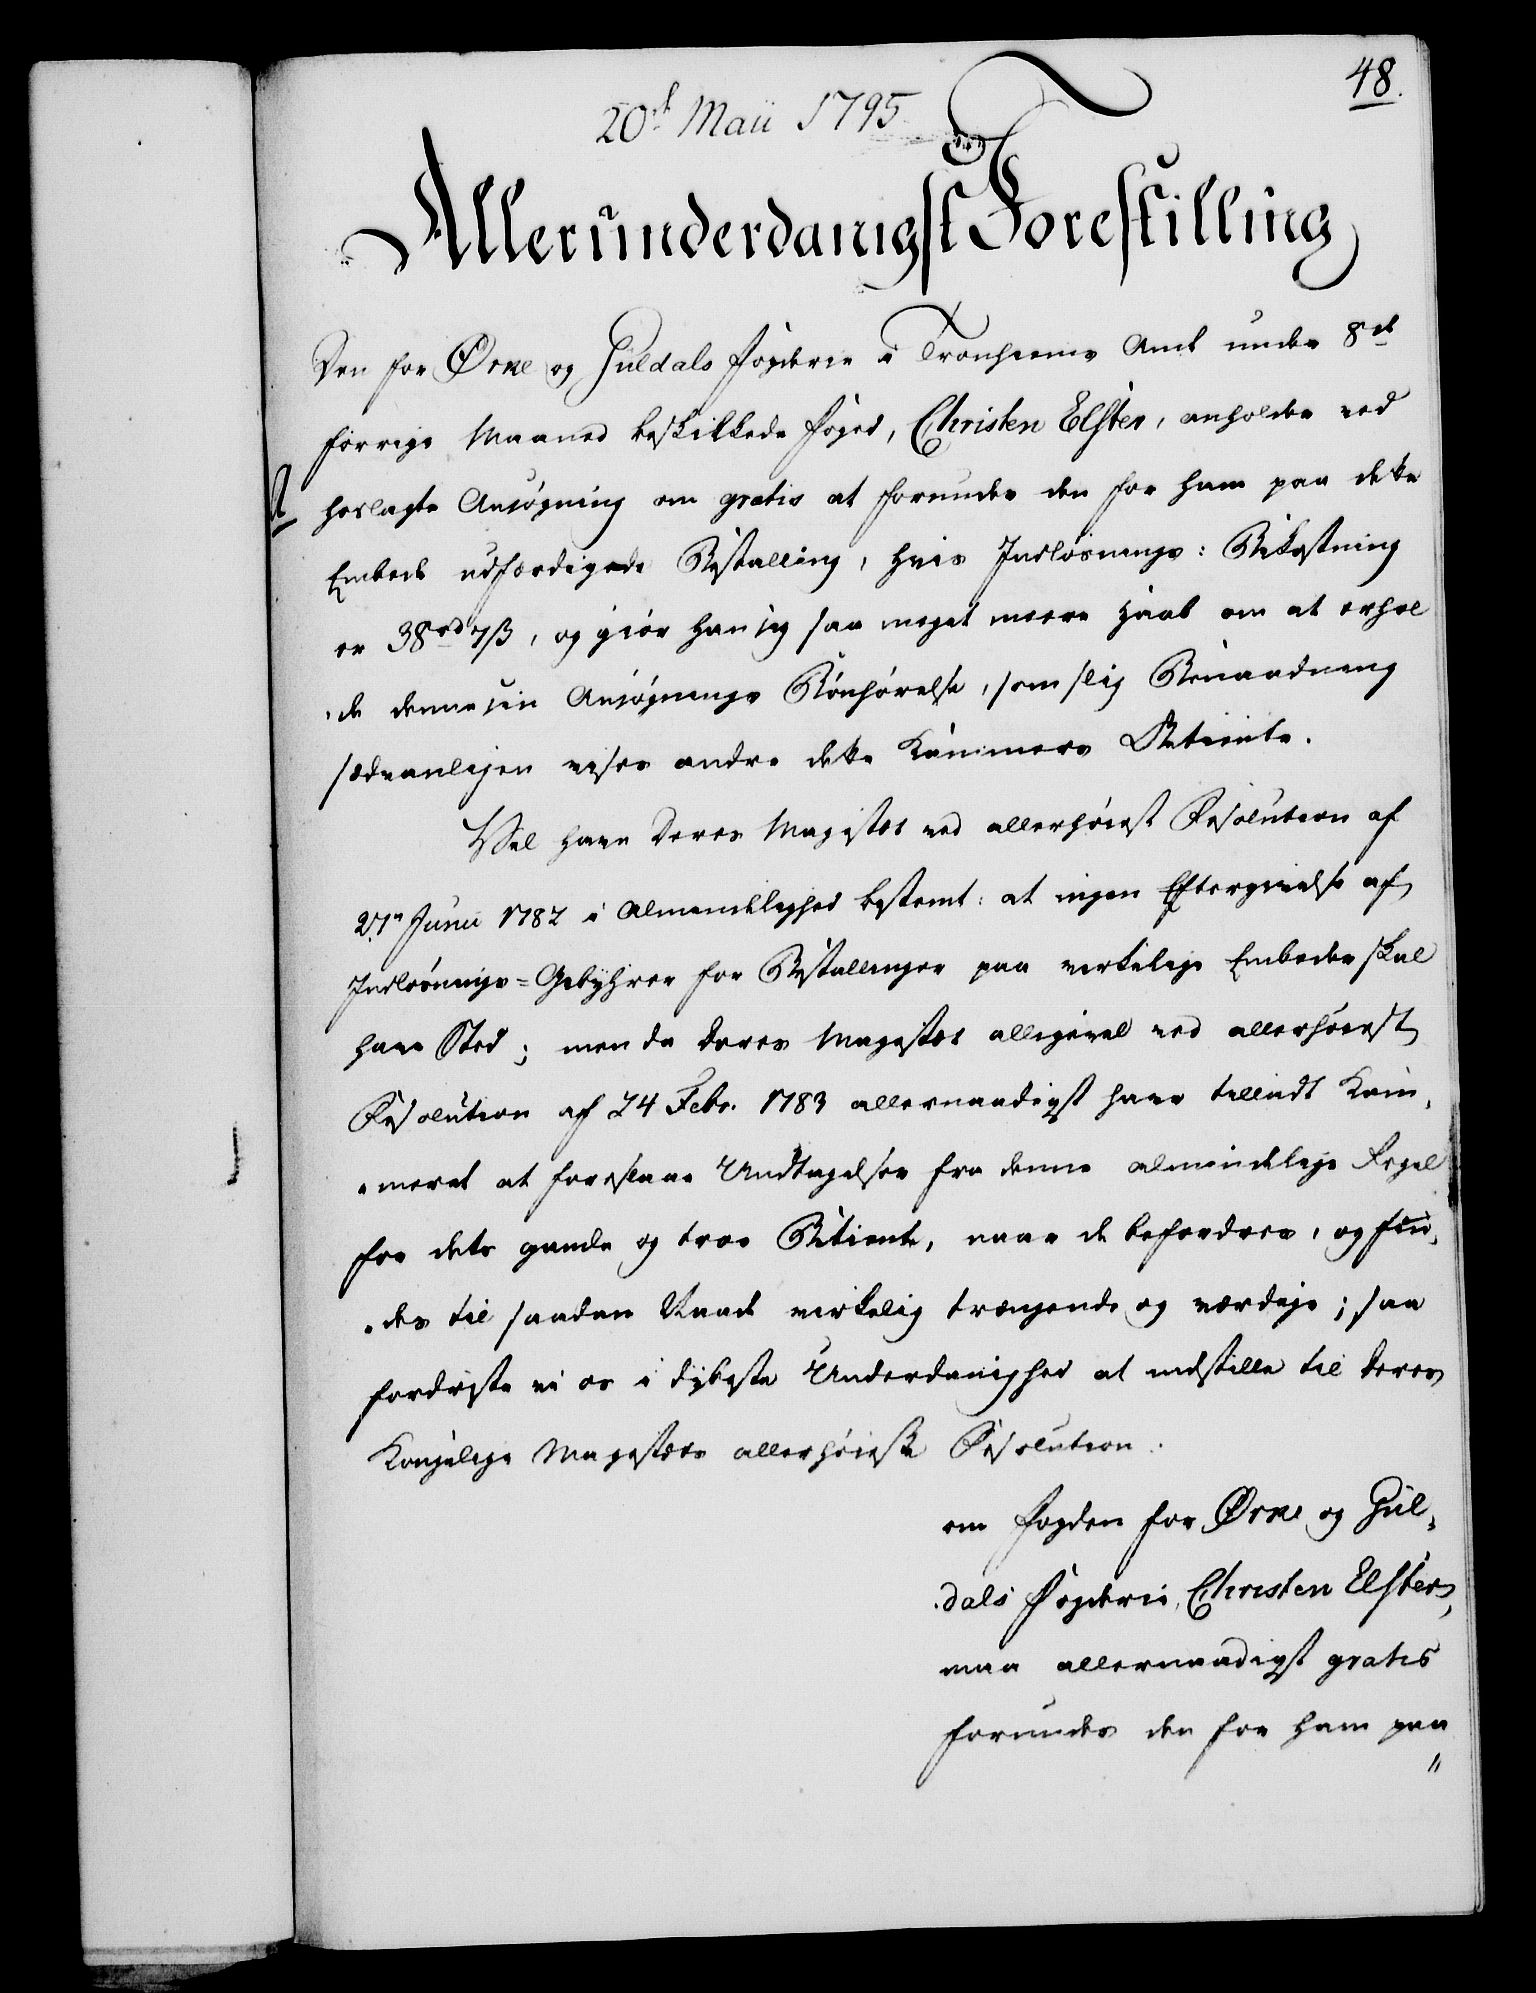 48.
20de Maii 1795
Allerunderdanigst Forestilling
Den for Örke og Guldals Fogderie i Tronhiems Amt under 8de
forrige Maaned beskikkede Foged, Christen Elster, anholder ved
A hoslagte Ansøgning om gratis at forundes den for ham paa dette
Embede udfærdigede Bestalling, hvis Indløsnings: Bekostning
er 38rd 7ß, og giør han sig saa meget meere Haab om at erhol
-de denne sin Ansøgnings Bønhørelse, som slig Benaadning
sædvanligen vises andre dette Kammers Betiente.
Vel have Deres Majestæt ved allerhøiest Resolution af
21de Junii 1782 i Almindelighed bestemt: at ingen Eftergivelse af
Indløsnings-Gebyhrer for Bestallinger paa virkelige Embeder skal
have Sted; men da Deres Majestæt alligevel ved allerhøiest
Resolution af 24 Febr. 1783 allernaadigst have tilladt Kam-
-meret at foreslaae Undtagelser fra denne almindelige Regel
for dets gamle og troe Betiente, naar de befordres, og fin-
-des til saadan Naade virkelig trængende og værdige; saa
fordriste vi os i dybeste Underdanighed at indstille til Deres
Kongelige Majestæts allerhøieste Resolution:
om Fogden for Örke og Gul-
dals Fogderie, Christen Elster,
maa allernaadigst gratis
forundes den for ham paa
"